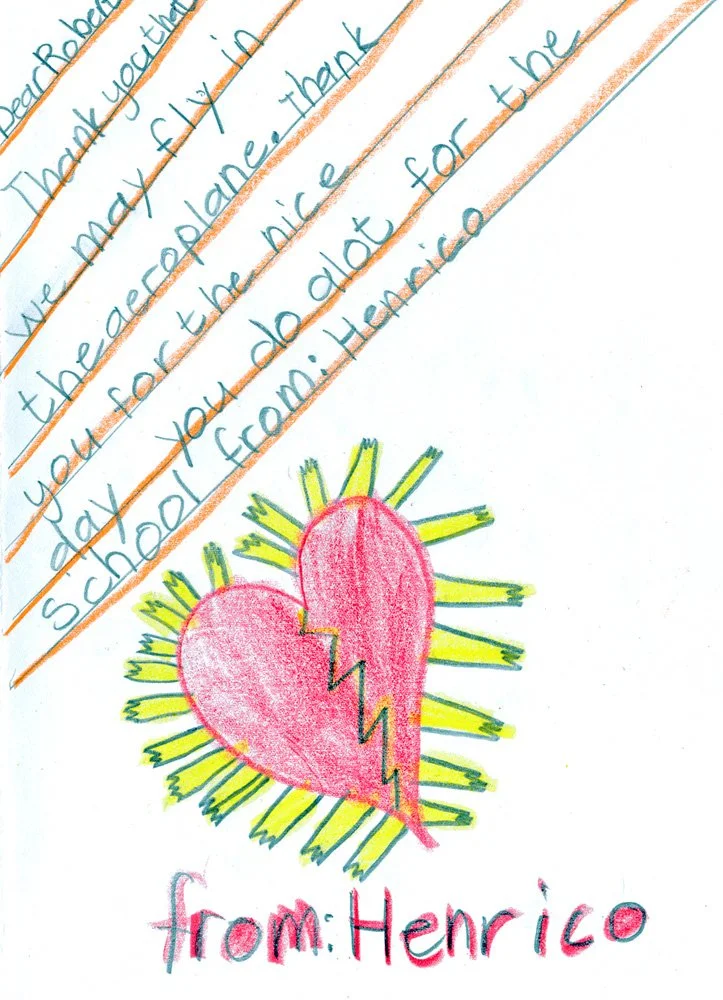 Dear Robert
Thank you that
we may fly in
the aeroplane. Thank
you for the nice
day you do alot for the
School from: Henrico
from: Henrico